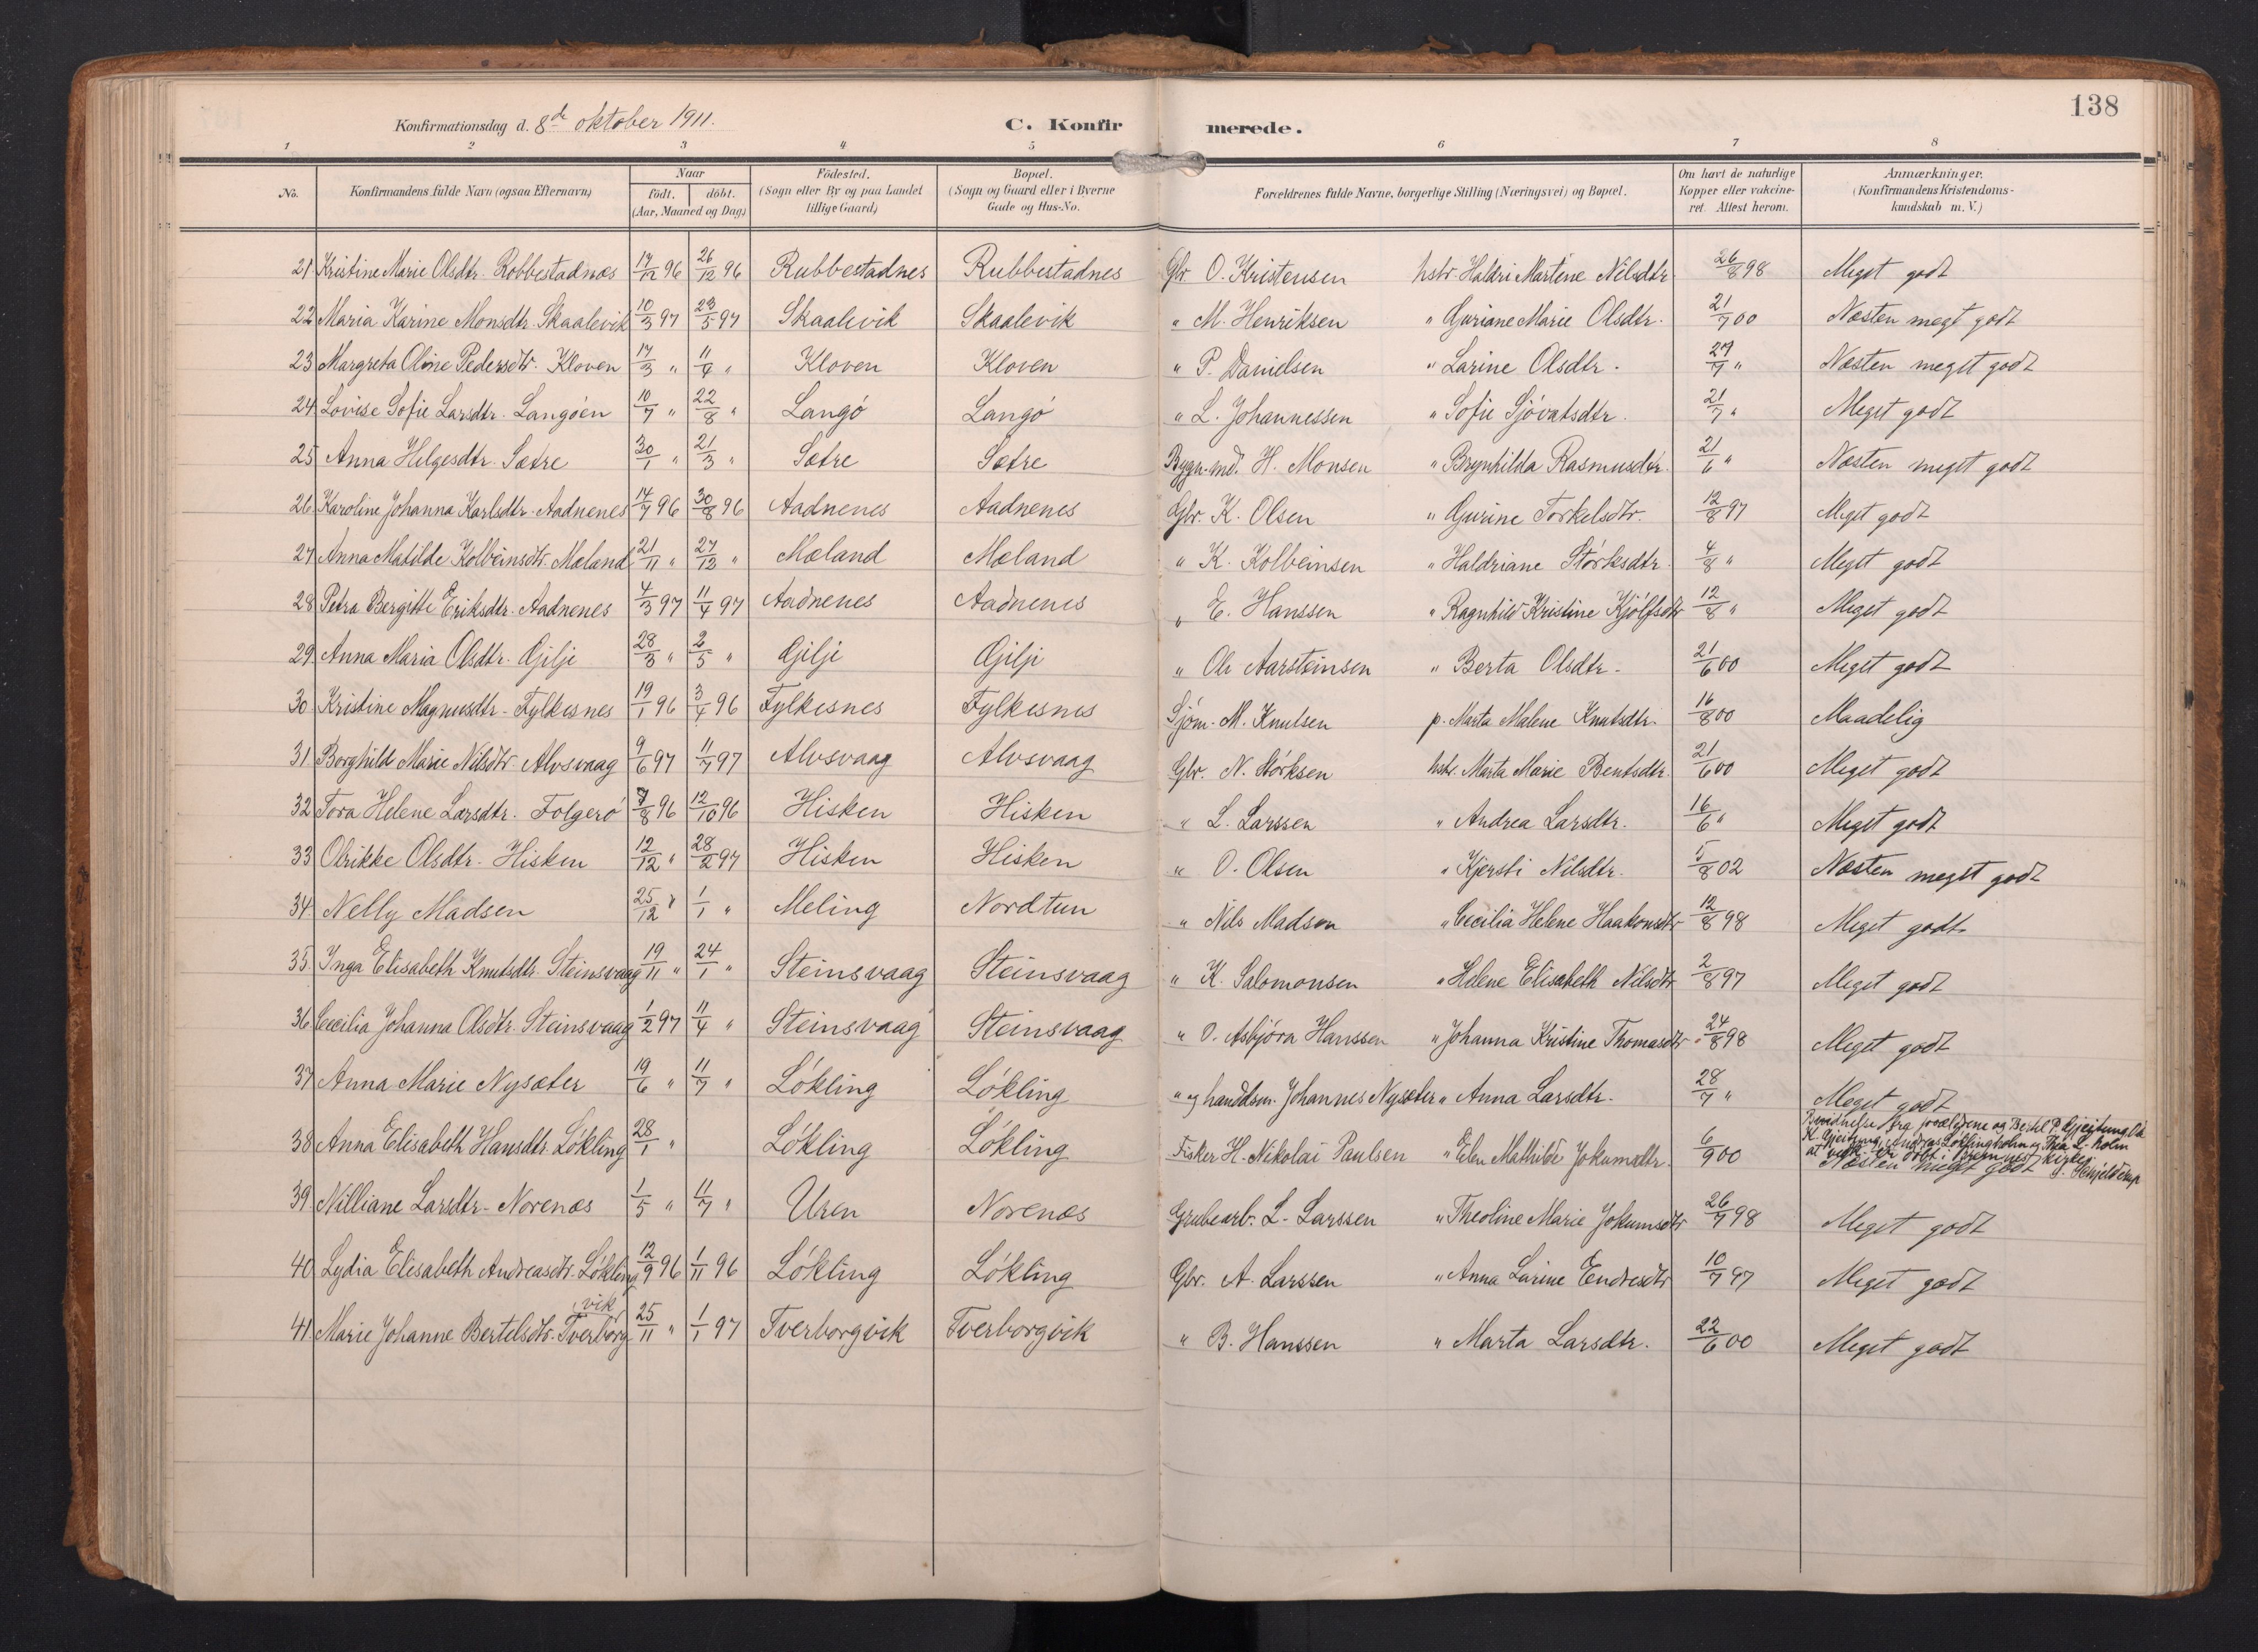 138
Konfirmationsdag d. 8de oktober 1911.
C. Konfirmerede.
1 2 3 4 5 6 7 8
No. | Konfirmandens fulde Navn (ogsaa Efternavn) | Naar født. døbt. (Aar, Maaned og Dag) | Fødested. (Sogn eller By og paa Landet tillige Gaard) | Bopæl. (Sogn og Gaard eller i Byerne Gade og Hus-No. | Forældrenes fulde Navne, borgerlige Stilling (Næringsvei) og Bopæl. | Om havt de naturlige Kopper eller vakcineret. Attest herom. | Anmærkninger. (Konfirmandens Kristendomskundskab m. V.)
21 Kristine Marie Olsdtr. Robbestadnæs 14/12 96 26/12 96 Rubbestadnes Rubbestadnes Gbr. O. Kristensen hstr. Haldri Martine Nilsdtr. 26/8 98 Meget godt
22 Maria Karine Monsdtr. Skaalevik 10/3 97 23/5 97 Skaalevik Skaalevik " M. Henriksen " Guriane Marie Olsdtr. 21/7 00 Næsten meget godt
23 Margreta Oline Pedersdtr. Kloven 17/3 " 11/4 " Kloven Kloven " P. Danielsen " Larine Olsdtr. 27/7 " Næsten meget godt
24 Lovise Sofie Larsdtr. Langøen 10/7 " 22/8 " Langø Langø " L. Johannessen " Sofie Sjøvatsdtr. 21/7 " Meget godt
25 Anna Helgesdtr. Sætre 30/1 " 21/3 " Sætre Sætre Bygn.md. H. Monsen " Brynhilda Rasmusdtr. 21/6 " Næsten meget godt
26. Karoline Johanna Karlsdtr. Aadnenes 14/7 96 30/8 96 Aadnenes Aadnenes Gbr. K. Olsen " Gurine Torkelsdtr. 12/8 97 Meget godt
27 Anna Matilde Kolbeinsdtr. Mæland 21/11 " 27/12 " Mæland Mæland " K. Kolbeinsen " Haldriane Størksdtr. 4/8 " Meget godt
28 Petra Bergitte Eriksdtr. Aadnenes 4/3 97 11/4 97 Aadnenes Aadnenes " E. Hanssen " Ragnhild Kristine Kjølfsdtr 12/8 " Meget godt
29. Anna Maria Olsdtr. Gilje 28/3 " 2/5 " Gilje Gilje " Ole Aarsteinsen " Berta Olsdtr. 21/6 00 Meget godt
30. Kristine Magnusdtr. Fylkesnes 19/1 96 3/4 96 Fylkesnes Fylkesnes Sjøm. M. Knutsen p. Marta Malene Knutsdtr. 16/8 00 Maadelig
31. Borghild Marie Nilsdtr. Alvsvaag 9/6 97 11/7 97 Alvsvaag Alvsvaag Gbr. N. Størksen hstr. Marta Marie Bentsdtr. 21/6 00 Meget godt
32 Tora Helene Larsdtr. Folgerø 7/8 96 12/10 96 Hisken Hisken " L. Larssen " Andrea Larsdtr. 16/6 " Meget godt
33 Olrikke Olsdtr. Hisken 12/12 " 28/2 97 Hisken Hisken " O. Olsen " Kjersti Nilsdtr. 5/8 02 Næsten meget godt
34 Nelly Madsen 25/12 " 1/1 " Meling Nordtun " Nils Madsen " Cecilia Helene Haakonsdtr 12/8 98 Meget godt
35. Inga Elisabeth Knutsdtr. Steinsvaag 19/11 " 24/1 " Steinsvaag Steinsvaag " K. Salomonsen " Helene Elisabeth Nilsdtr. 2/8 97 Meget godt
36. Cecilia Johanna Olsdtr. Steinsvaag 1/2 97 11/4 " Steinsvaag Steinsvaag " O. Asbjørn Hanssen " Johanna Kristine Thomasdtr. 24/8 98 Meget godt
37 Anna Marie Nysæter 19/6 " 11/7 " Løkling Løkling " og handelsm. Johannes Nysæter " Anna Larsdtr. 28/7 " Meget godt
38 Anna Elisabeth Hansdtr. Løkling 28/1 " Løkling Løkling Fisker H. Nikolai Paulsen " Elen Mathilde Jokumsdtr. 6/9 00 Næsten meget godt
Bevidnelse fra forældrene og Bertel P. Gjeitung
K. Gjeitung, Andreas Løklingholm og Thea L-holm
at være døbt i Bremnes kirke
J. Schjelderup
39. Nilliane Larsdtr. Norenæs 1/5 " 11/7 " Uren Norenæs Grubearb. L. Larssen " Theoline Marie Jokumsdtr 26/7 98 Meget godt
40. Lydia Elisabeth Andreasdtr. Løkling 12/9 96 1/11 96 Løkling Løkling Gbr. A. Larssen " Anna Larine Endresdtr 10/7 97 Meget godt
41. Marie Johanne Bertelsdtr. Tverborgvik 25/11 " 1/1 97 Tverborgvik Tverborgvik " B. Hanssen " Marta Larsdtr. 22/6 00 Meget godt